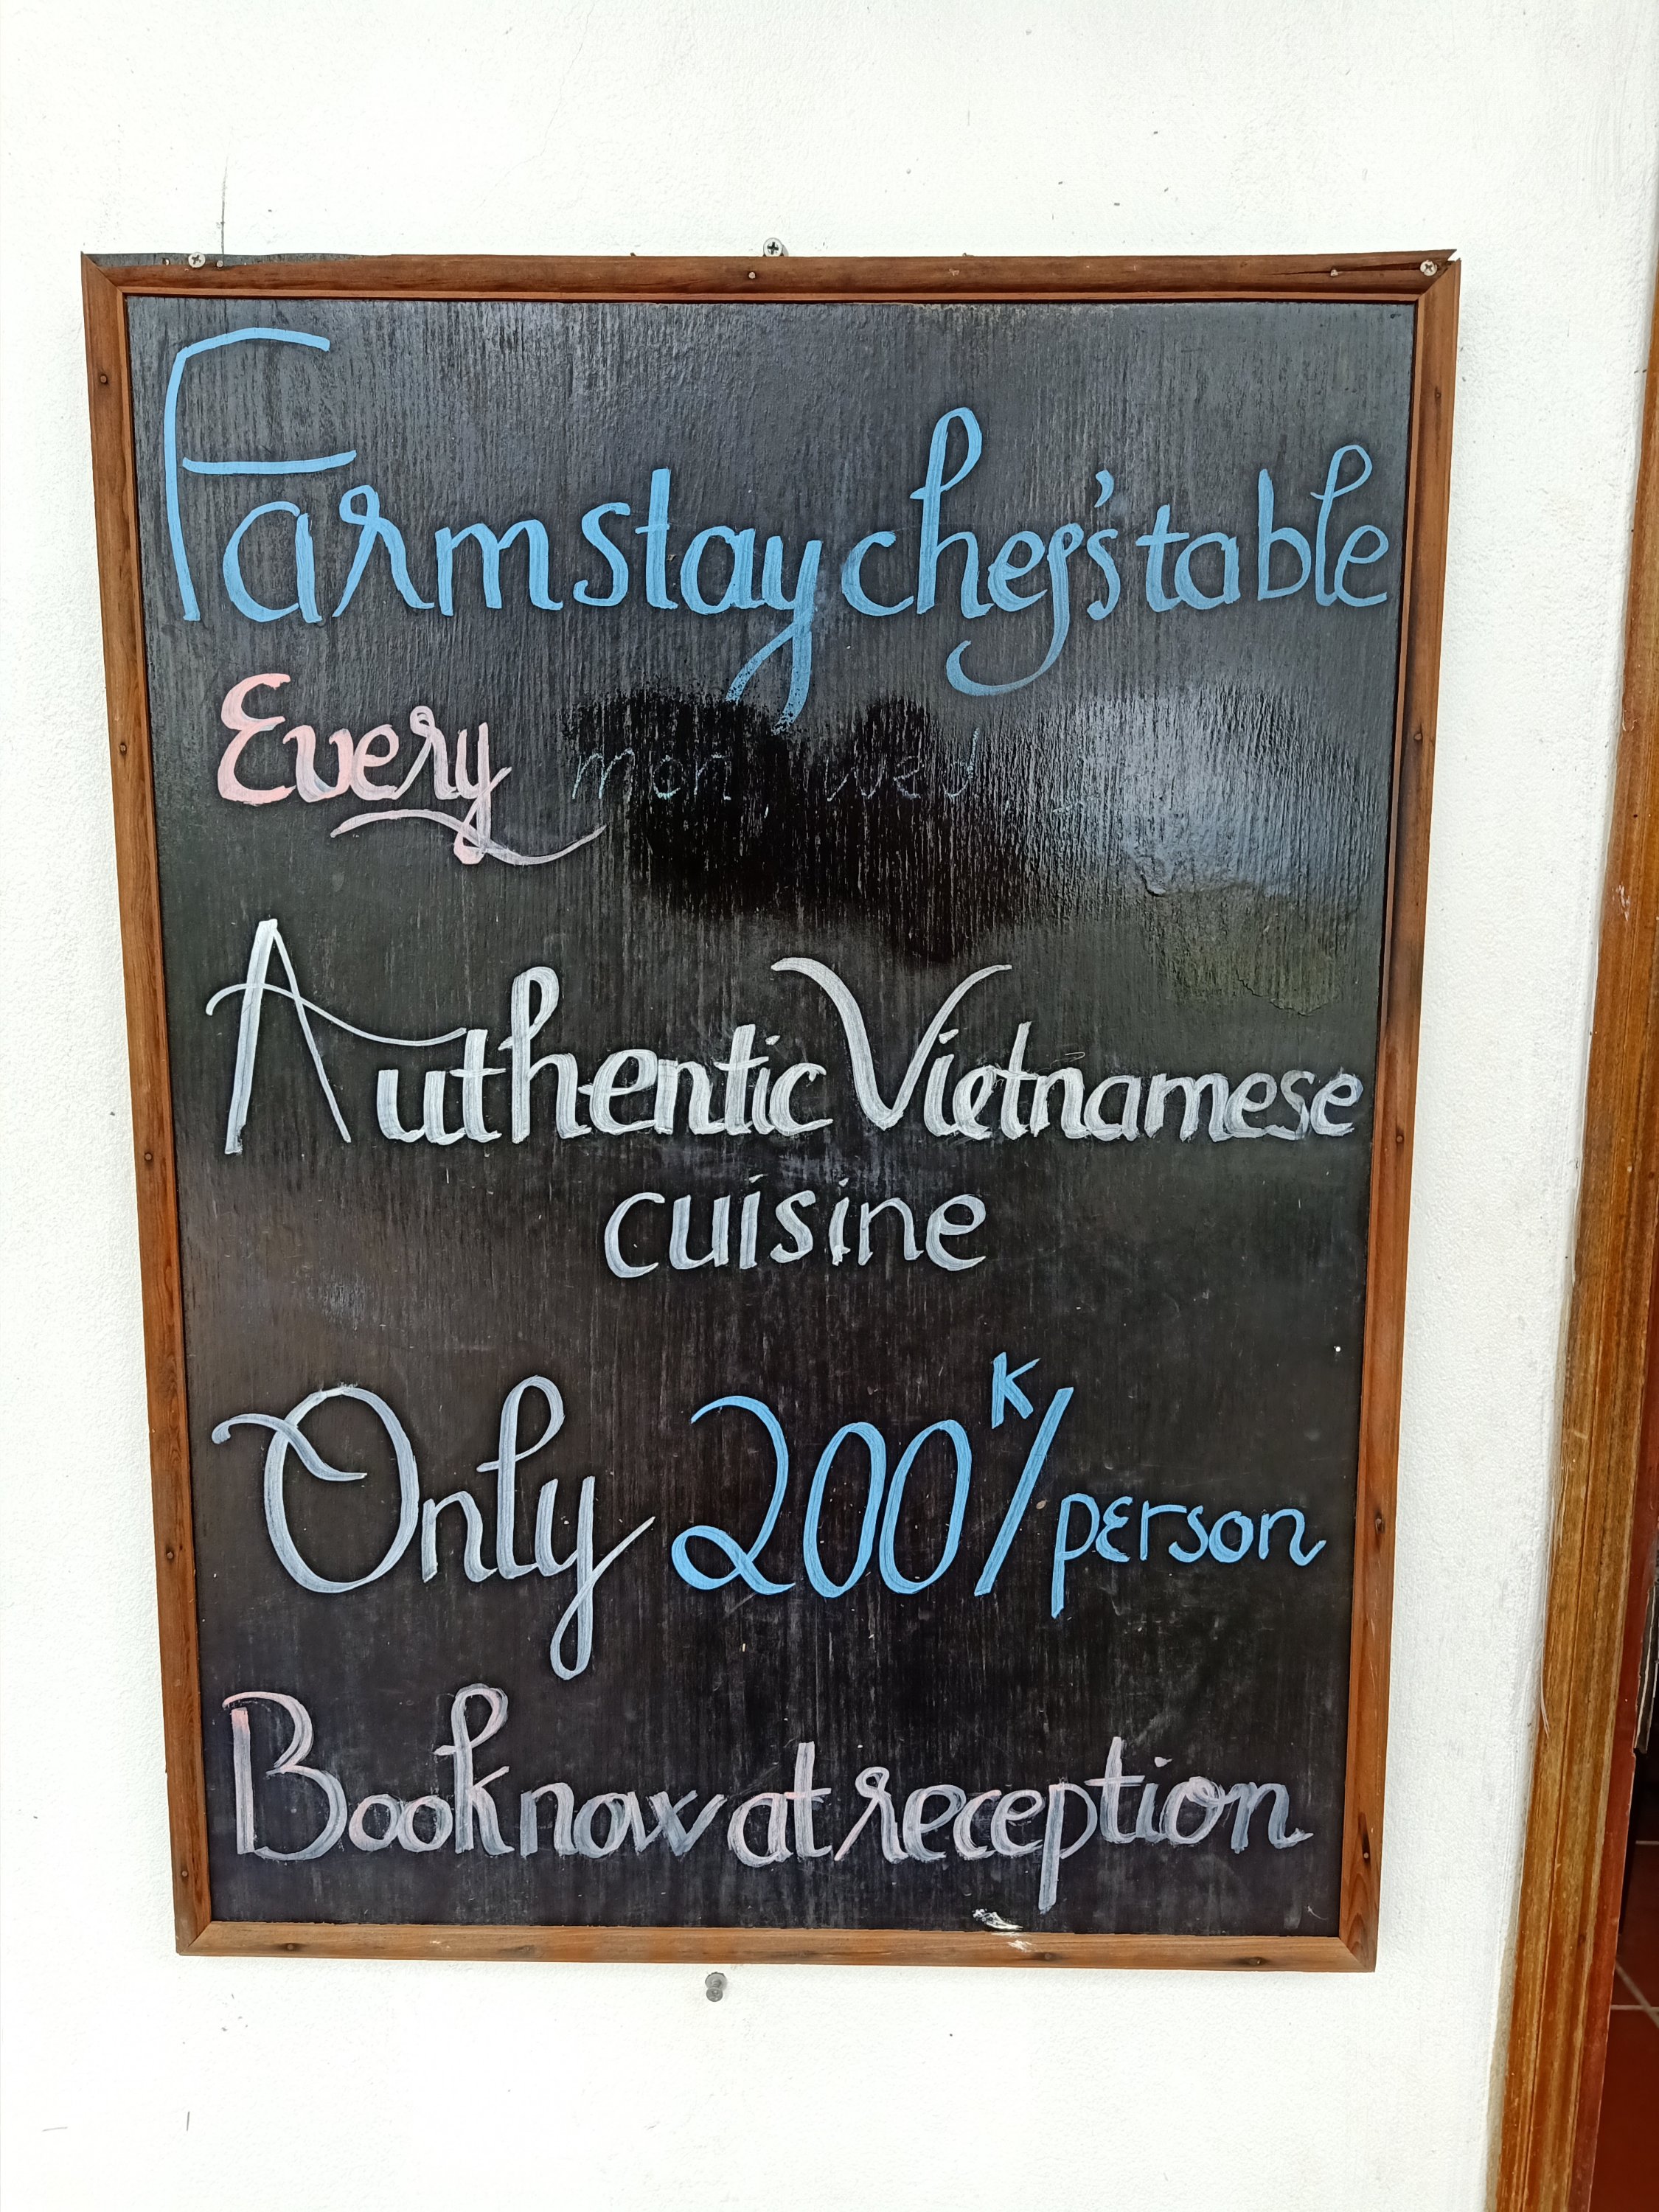 Farmstay chef's table
Every mon, wed,
Authentic Vietnamese
cuisine
Only 200K/person
Book now at reception